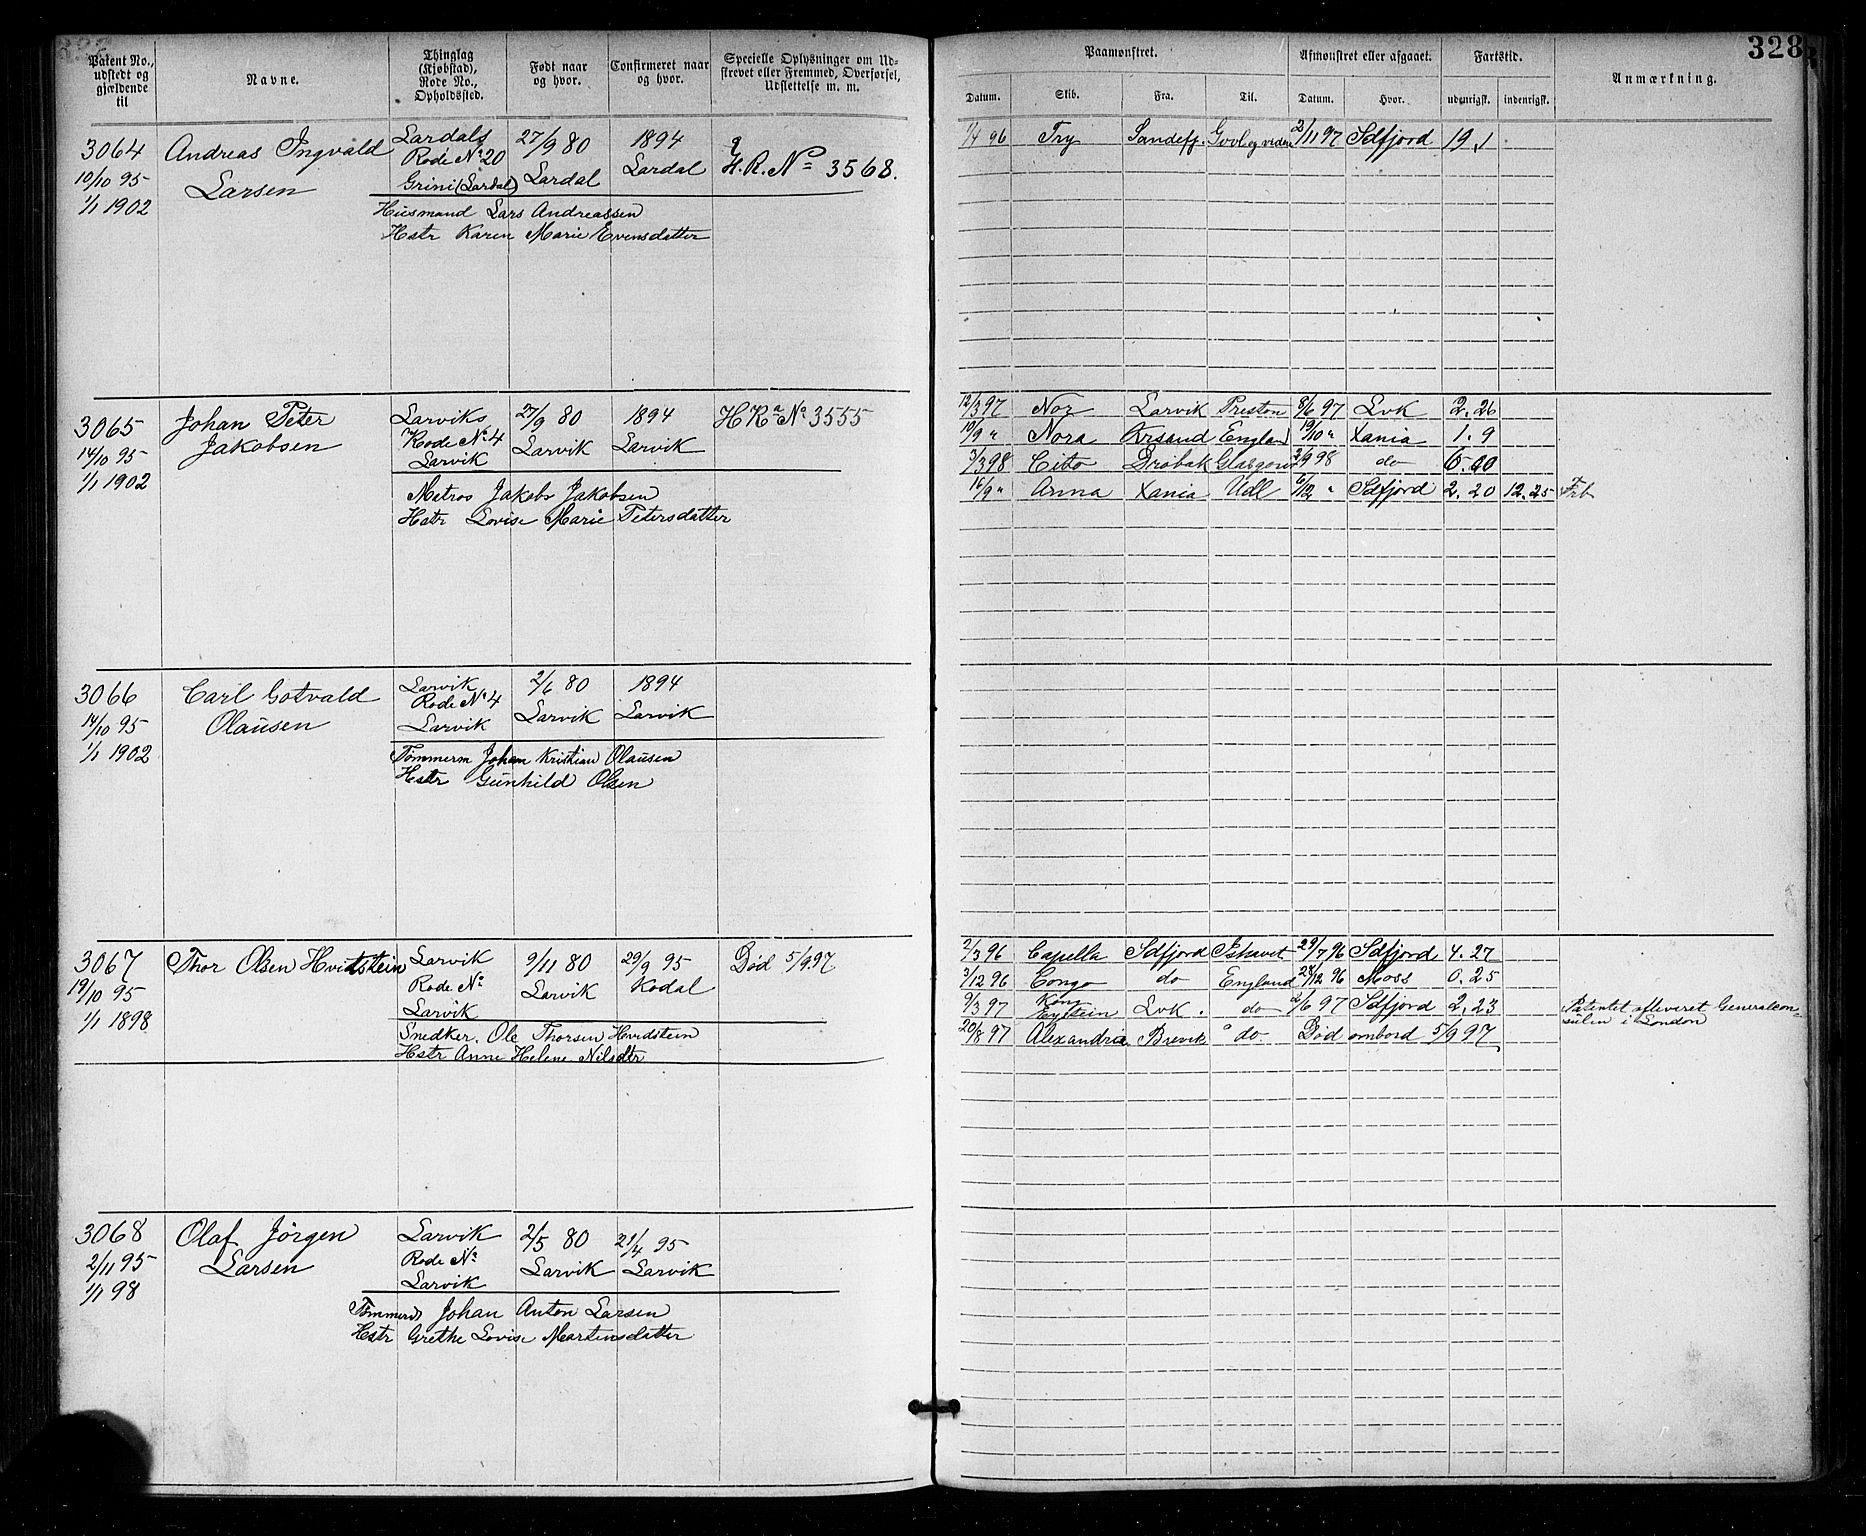 328
Patent No., udstedt og gjældende til
Navne.
Thinglag (Kjøbstad), Rode No., Opholdssted.
Født naar og hvor.
Confirmeret naar og hvor.
Specielle Oplysninger om Udstrevet eller Fremmed, Overførsel, Udslettelse m. m.
Paamønstret.
Afmønstret eller afgaaet.
Fartstid.
Anmærkning.
Datum.
Skib.
Fra.
Til.
Datum.
Hvor.
udenrigsk.
indenrigsk.
3064
10/10 95
1/1 1902
Andreas Ingvald
Larsen
Lardals
Rode No 20
Grini (Lardal)
27/9 80
Lardal
1894
Lardal
H.R. No 3568.
Husmand Lars Andreassen
Hstr Karen Marie Evensdatter
1/4 96 Try Sandefj. Govl og videre 2/11 97 Sdfjord 19.1
3065
14/10 95
1/1 1902
Johan Peter
Jakobsen
Larviks
Rode No 4
Larvik
27/9 80
Larvik
1894
Larvik
H Ra No 3555
Matros Jakob Jakobsen
Hstr Lovise Marie Petersdatter
12/3 97 Nor Larvik Preston 8/6 97 Lvk 2.26
10/9 " Nora Krsand England 19/10 " Xania 1.9
3/3 98 Cito Drøbak Glasgow 2/9 98 do 6.00
16/9 " Anna Xania Udl 6/12 " Sdfjord 2.20 12.25 Frb
3066
14/10 95
1/1 1902
Carl Gotvald
Olausen
Larvik
Rode No 4
Larvik
2/6 80
Larvik
1894
Larvik
Tømmerm Johan Kristian Olausen
Hstr Gunhild Olsen
3067
19/10 95
1/1 1898
Thor Olsen Hvidstein
Larvik
Rode No
Larvik
9/11 80
Larvik
29/9 95
Kodal
Død 5/9 97
Snedker. Ole Thorsen Hvidstein
Hstr Anne Helene Nilsdtr
2/3 96 Capella Sdfjord Ishavet 29/7 96 Sdfjord 4.27
3/12 96 Congo do England 28/12 96 Moss 0.25
9/3 97 Kong Eystein Lvk. do 2/6 97 Sdfjord 2.23
20/8 97 Alexandria Brevik do. Død ombord 5/9 97
Patentet afleveret Generalcon-
sulen i London
3068
2/11 95
1/1 98
Olaf Jørgen
Larsen
Larvik
Rode No
Larvik
2/5 80
Larvik
21/4 95
Larvik
Tømmermd Johan Anton Larsen
Hstr Grethe Lovise Martinsdatter